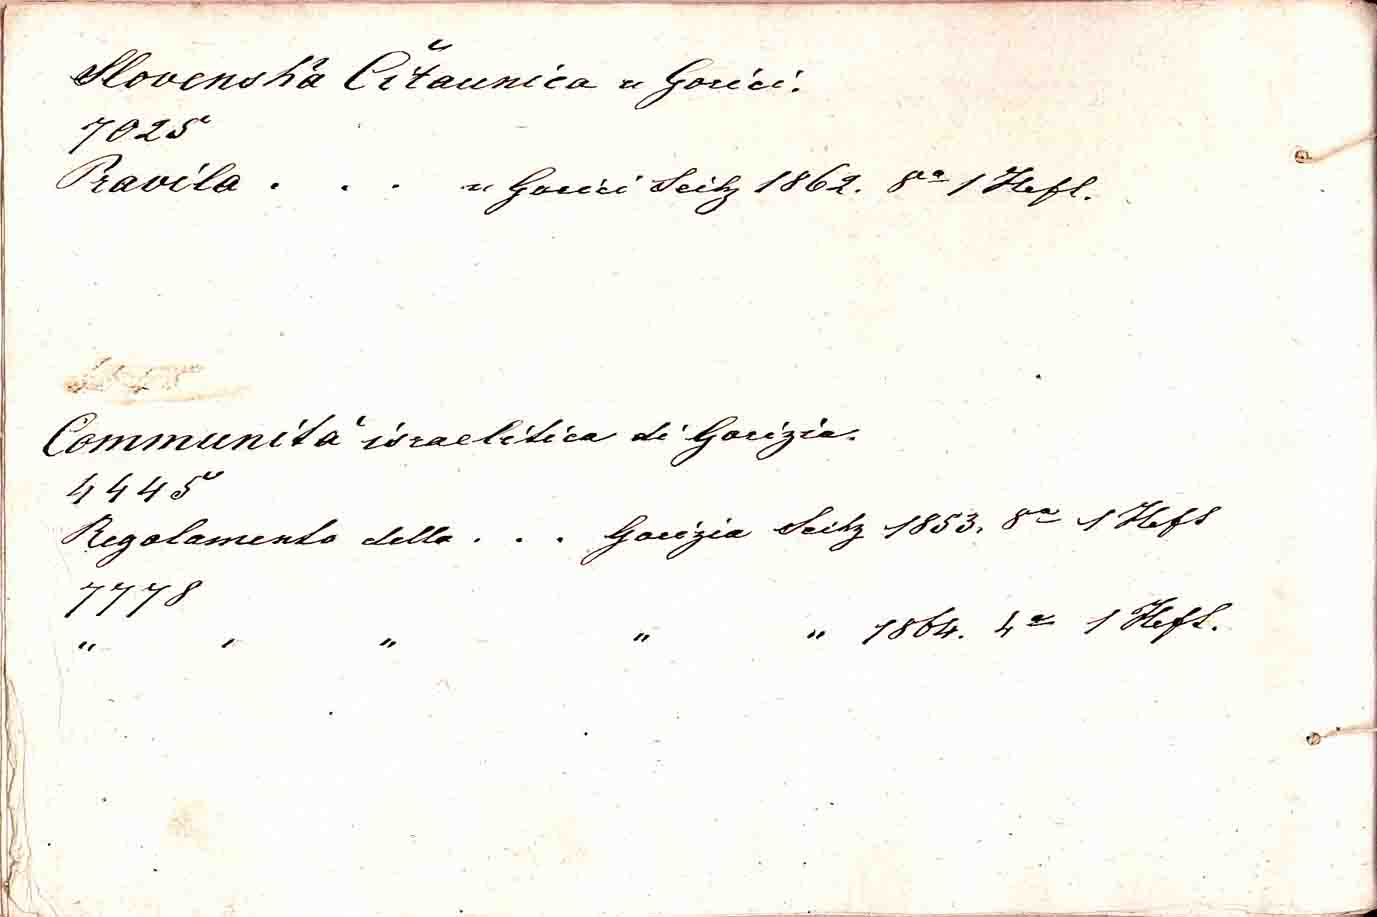 Slovenska Čitaunica u Gorici.
7025
Pravila . . . u Gorici Seitz 1862. 8º 1 Heft.
Communità israelitica di Gorizia.
4445
Regolamento della . . . Gorizia Seitz 1853. 8º 1 Heft
7778
„ „ „ „ „ 1864. 4º 1 Heft.